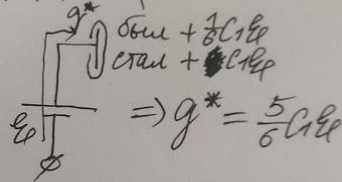 g*
был + 1/6 C₁ℰ
стал + C₁ℰ
ℰ
⇒ g* = 5/6 C₁ℰ